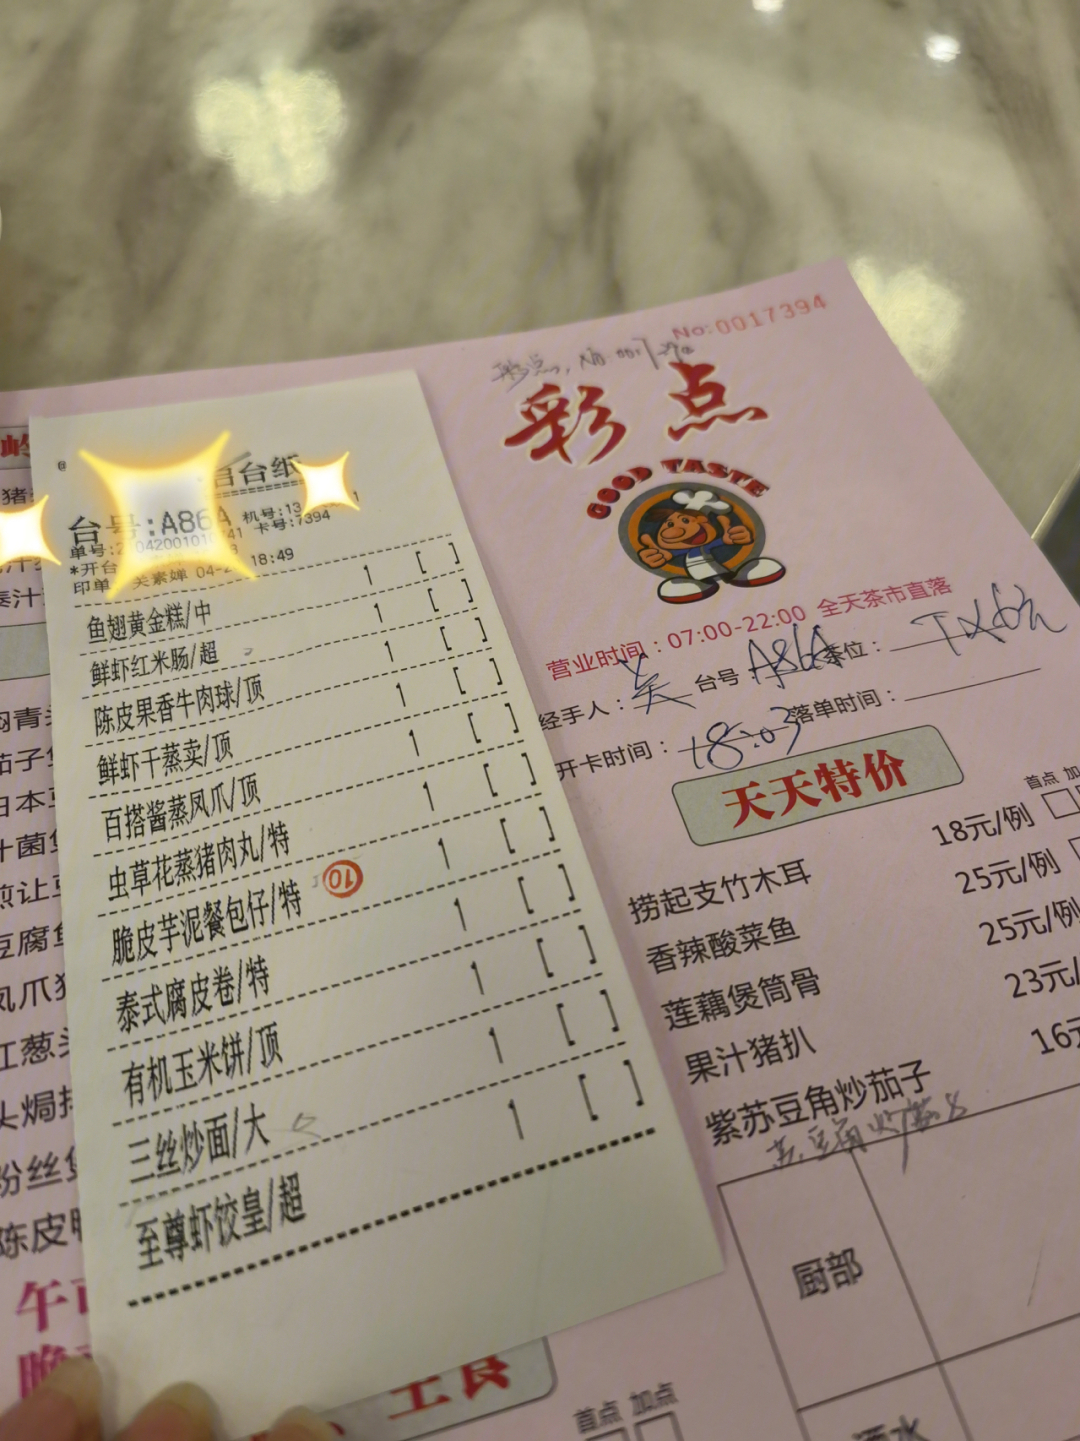 台纸
台号:A86A
机号:13
卡号:7394
单号:
*开台
印单
关素婵 04-2
18:49
鱼翅黄金糕/中 1 [ ]
鲜虾红米肠/超 1 [ ]
陈皮果香牛肉球/顶 1 [ ]
鲜虾干蒸卖/顶 1 [ ]
百搭酱蒸凤爪/顶 1 [ ]
虫草花蒸猪肉丸/特 1 [ ]
脆皮芋泥餐包仔/特 1 [ ]
10
泰式腐皮卷/特 1 [ ]
有机玉米饼/顶 1 [ ]
三丝炒面/大 1 [ ]
至尊虾饺皇/超 1 [ ]
No:0017394
彩点
GOOD TASTE
营业时间：07:00-22:00 全天茶市直落
经手人： 台号 A86A 茶位：
开卡时间：18:03 落单时间：
天天特价
首点 加
捞起支竹木耳 18元/例
香辣酸菜鱼 25元/例
莲藕煲筒骨 25元/例
果汁猪扒 23元/
紫苏豆角炒茄子 16元
厨部
酒水
主食
首点 加点
猪
泰汁
闷青
茄子
日本
什菌
煎让豆
豆腐
凤爪
红葱头
头焗排
粉丝
陈皮鸭
午市
晚